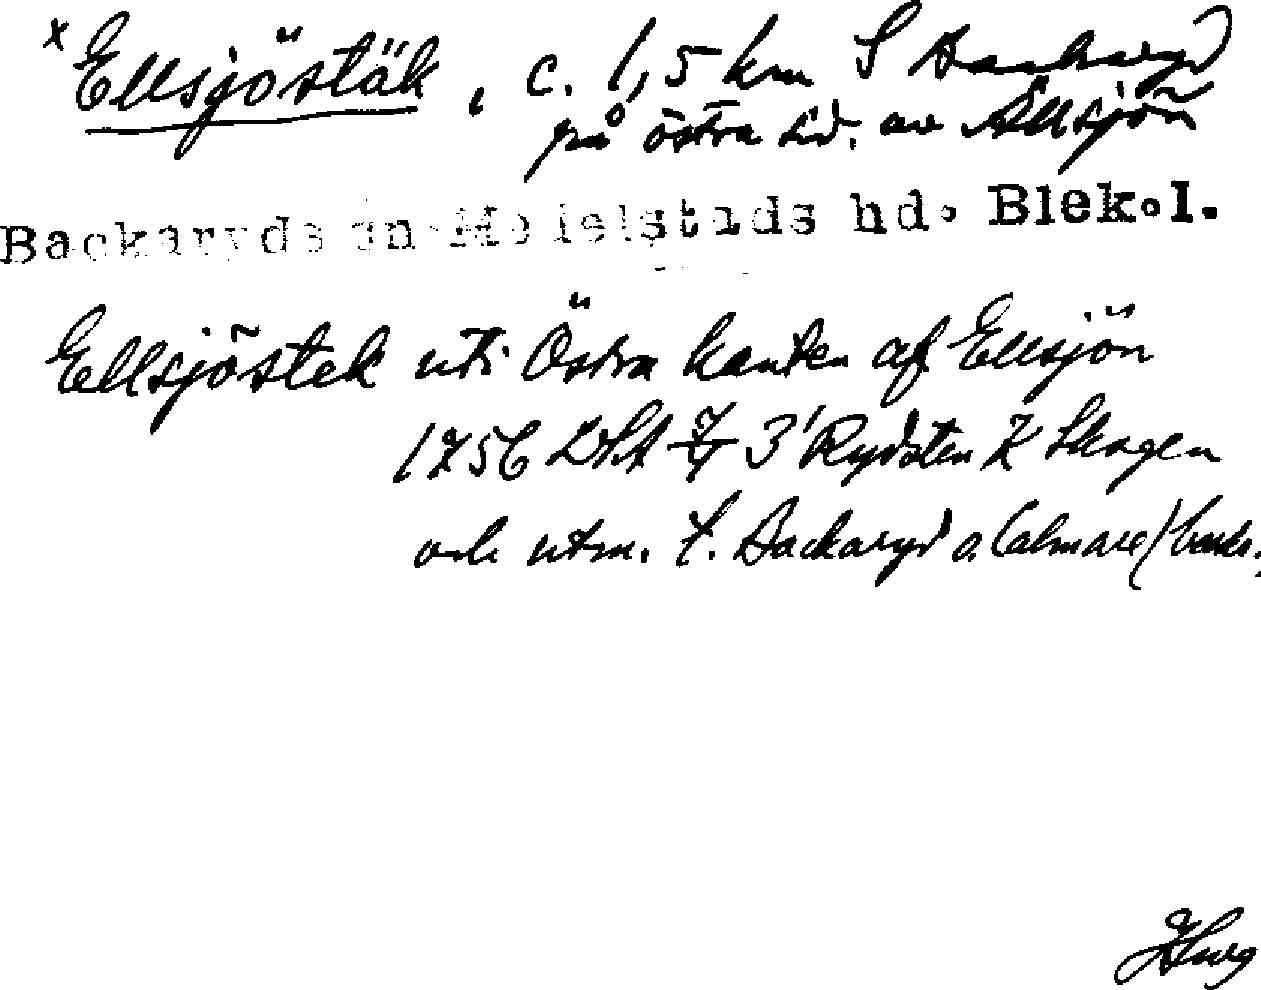 x Ellsjöstäk, c. 1,5 km S Backaryd
på östra sid. av Ällsjön
Backaryds sn Medelstads hd. Blek.l.
Ellsjöstek uti Östra kanten af Ellsjön
1756 LSA 3' Rydsten Skogen
och utm. t. Backaryd o. Calmare/backe.